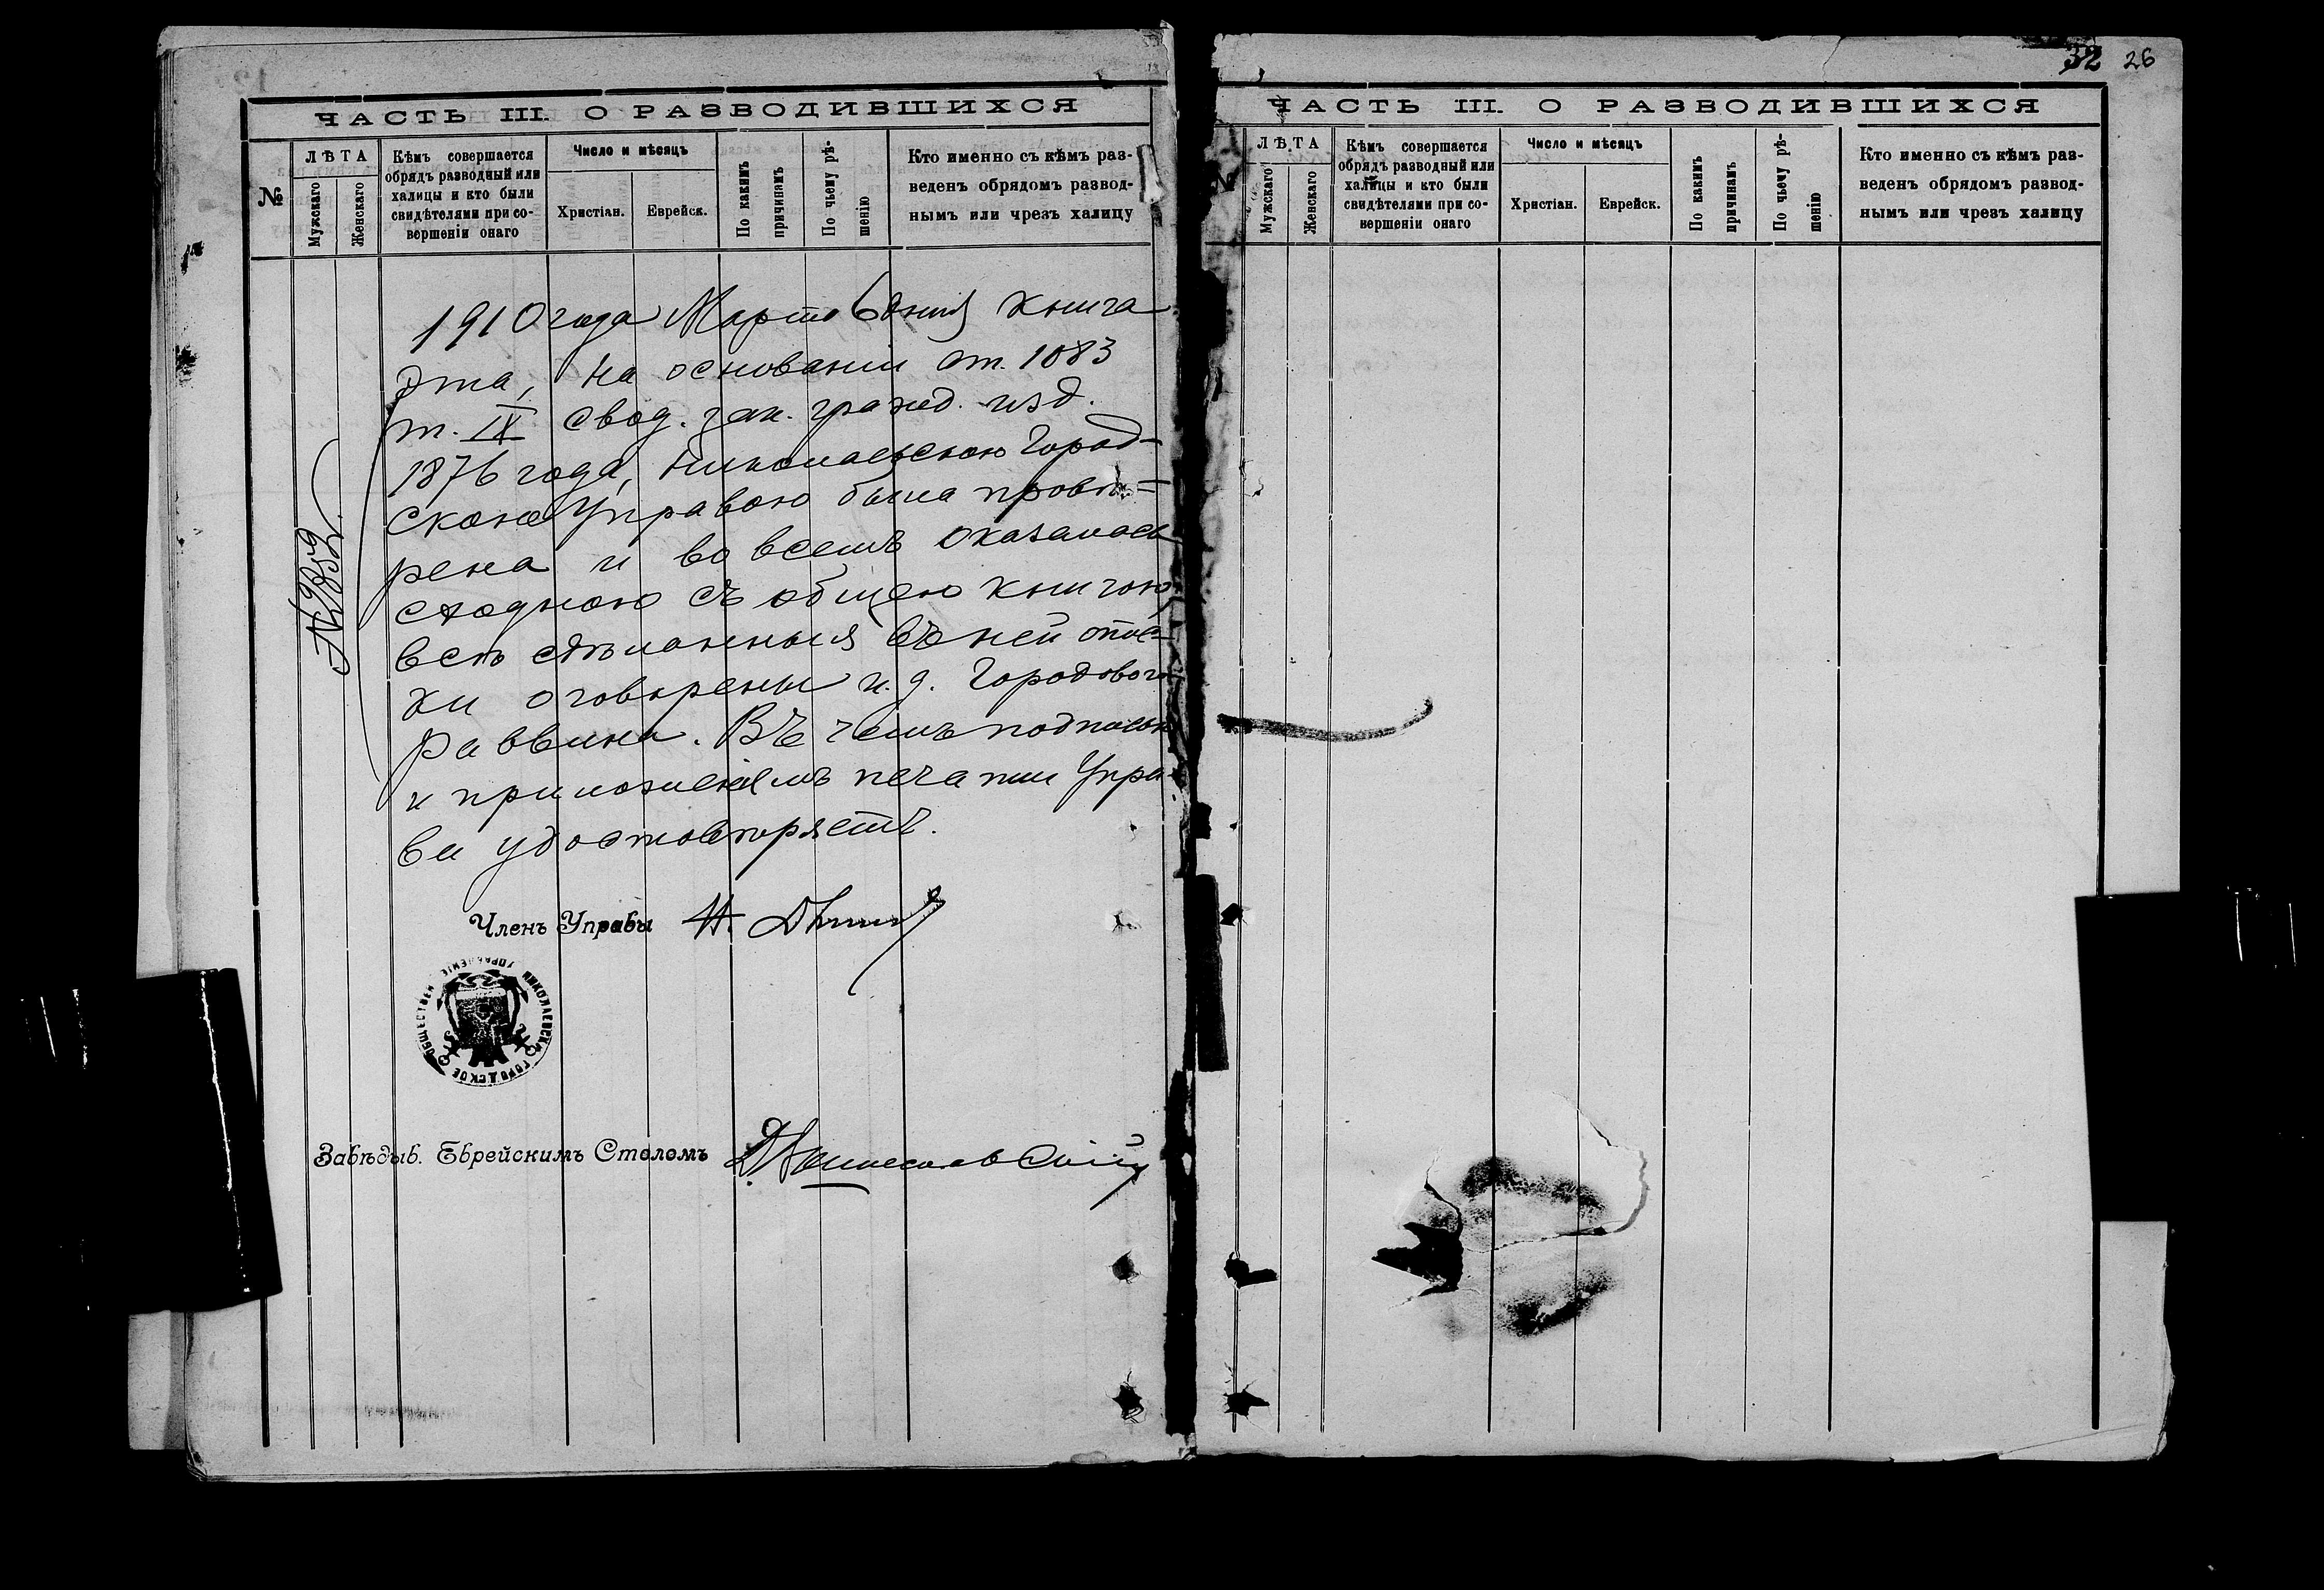 ЧАСТЬ III. О РАЗВОДИВШИХСЯ
№
ЛѢТА
Мужскаго
Женскаго
Кѣмъ совершается
обрядъ разводный или
халицы и кто были
свидѣтелями при со-
вершеніи онаго
Число и мѣсяцъ
Христіан.
Еврейск.
По какимъ
причинамъ
По чьему рѣ-
шенію
Кто именно съ кѣмъ раз-
веденъ обрядомъ развод-
нымъ или чрезъ халицу
1910 года Марта 6 дня книга
эта, на основаніи ст. 1083
т. IX свод. зак. гражд. изд.
1876 года, Николаевскою Город-
скою Управою была провѣ-
рена и во всемъ оказалась
сходною съ общею книгою
всѣ сдѣланныя въ ней опис-
ки оговорены и. д. Городового
Раввина. Въ чемъ подписью
и приложеніемъ печати Упра-
вы удостовѣряетъ.
Членъ Управы
НИКОЛАЕВСКОЕ ГОРОДСКОЕ ОБЩЕСТВЕН УПРАВЛЕНІЕ
Завѣдыв. Еврейскимъ Столомъ
32 26
ЧАСТЬ III. О РАЗВОДИВШИХСЯ
ЛѢТА
Мужскаго
Женскаго
Кѣмъ совершается
обрядъ разводный или
халицы и кто были
свидѣтелями при со-
вершеніи онаго
Число и мѣсяцъ
Христіан.
Еврейск.
По какимъ
причинамъ
По чьему рѣ-
шенію
Кто именно съ кѣмъ раз-
веденъ обрядомъ развод-
нымъ или чрезъ халицу